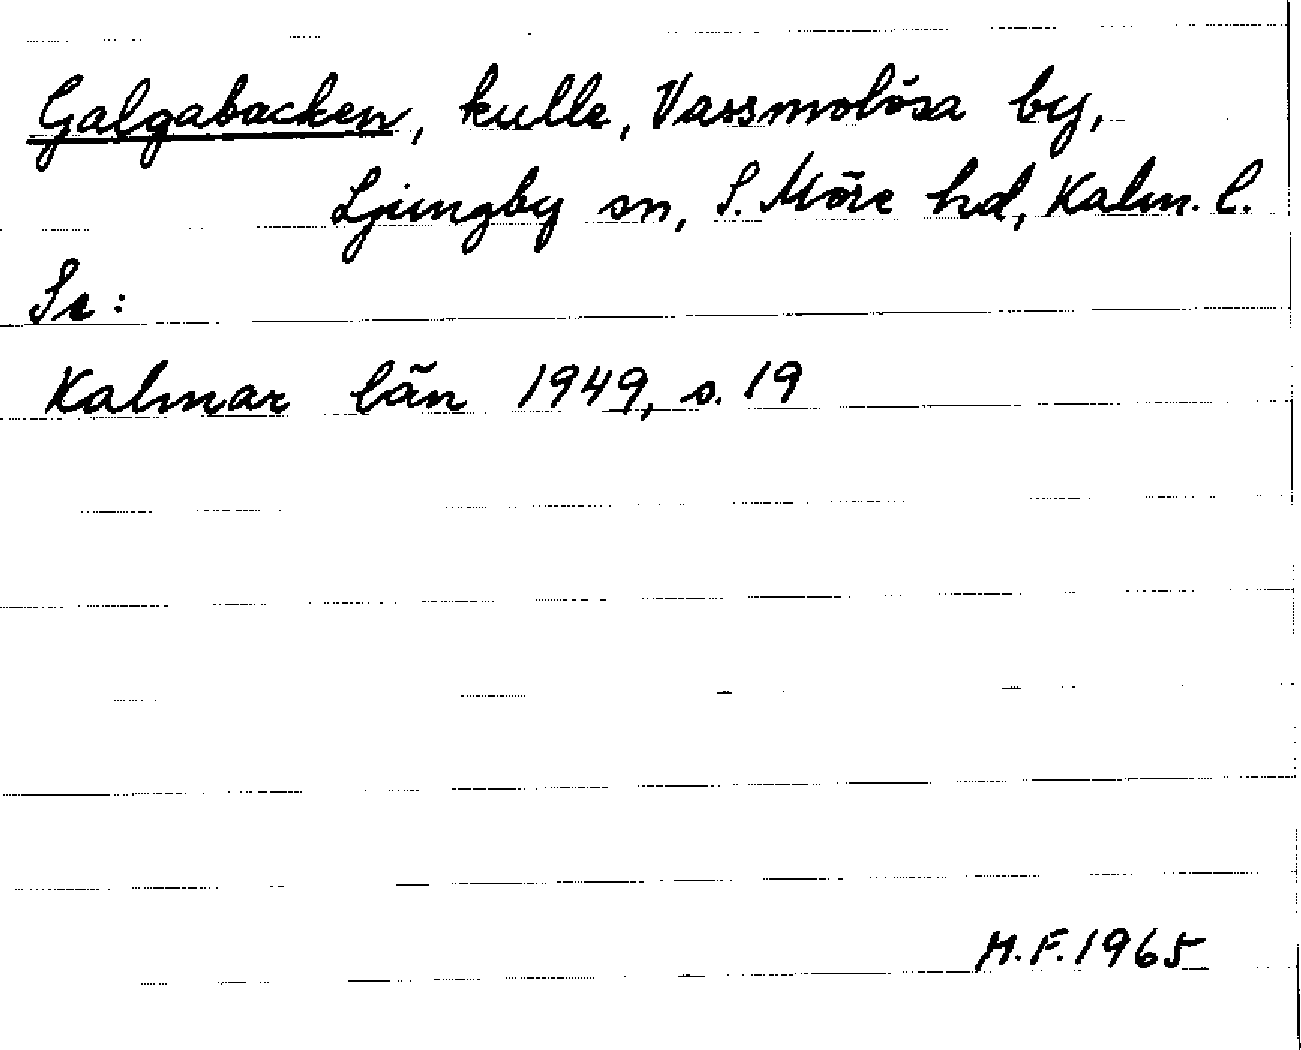 Galgabacken, kulle, Vassmolösa by,
Ljungby sn, S. Möre hd, Kalm. l.
Se:
Kalmar län 1949, s. 19
M.F. 1965